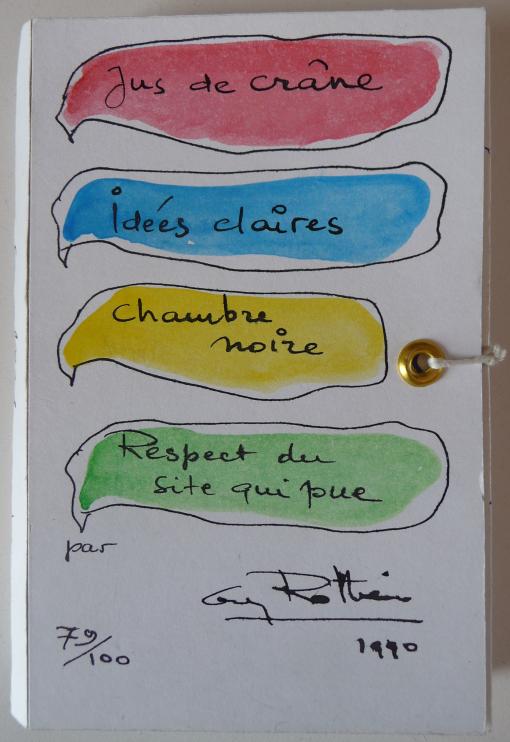 Jus de crâne
Idées claires
Chambre
noire
Respect du
site qui pue
par
Guy
79/100
1990